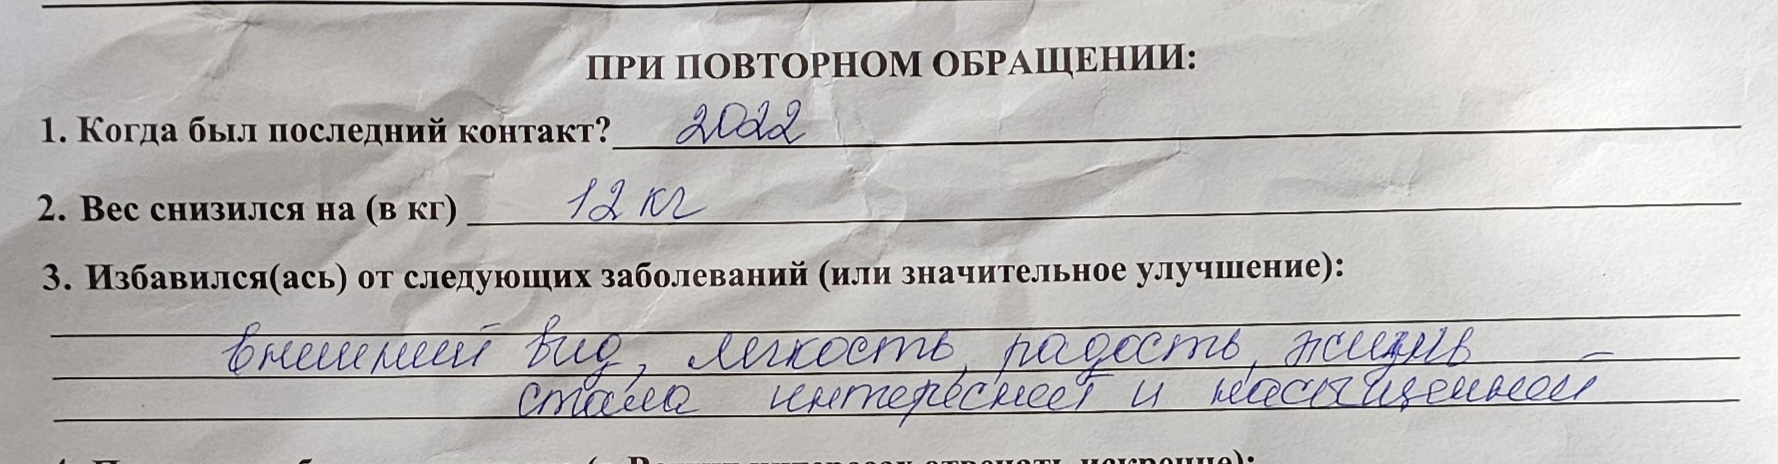 ПРИ ПОВТОРНОМ ОБРАЩЕНИИ:
1. Когда был последний контакт? 2022
2. Вес снизился на (в кг) 12 кг
3. Избавился(ась) от следующих заболеваний (или значительное улучшение):
внешний вид, легкость, радость, жизнь
стала интереснее и насыщенней